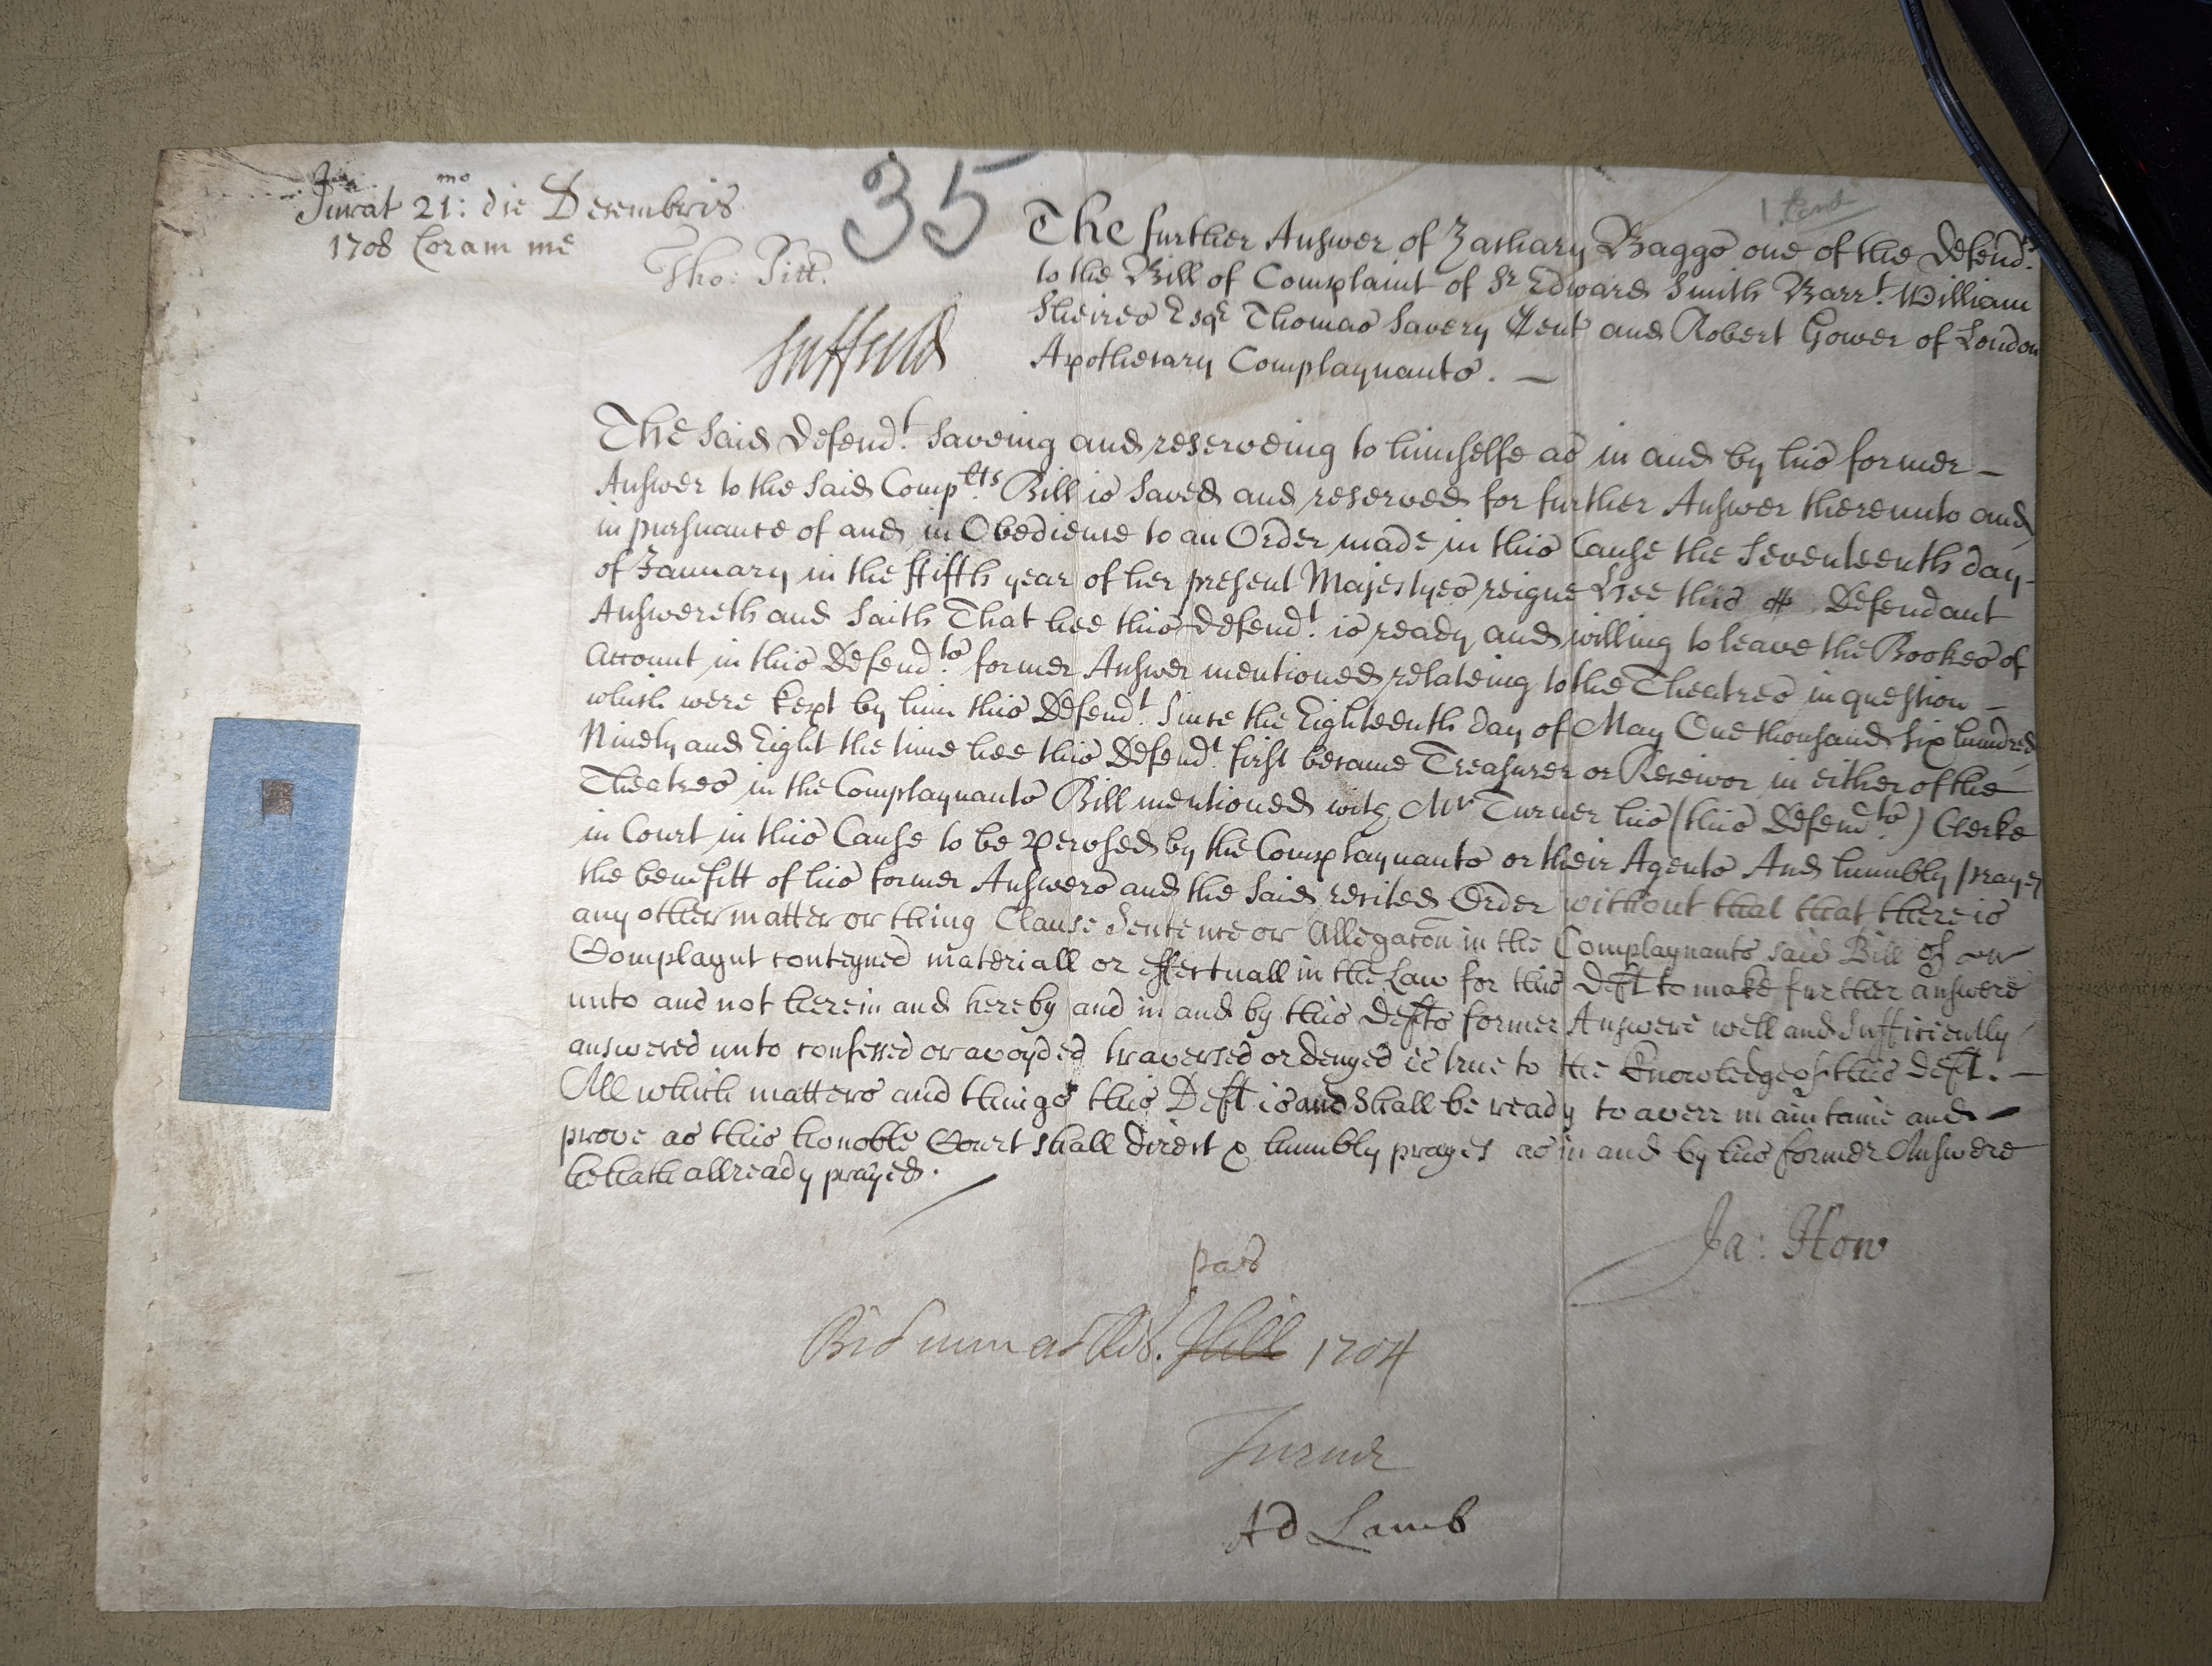 Jurat 21:mo die Decembris
1708 Coram me
Tho: Pitt.
35
Suffield
The further Answer of Zachary Baggs one of the Defendts.
to the Bill of Complaint of Sr Edward Smith Barrt. William
Sheires Esqr Thomas Savery Gent and Robert Gower of London
Apothecary Complaynants. —
The said Defendt. saveing and reserveing to himselfe as in and by his former —
Answer to the said Complts. Bill is saved and reserved for further Answer thereunto and
in pursuance of and in Obedience to an Order made in this Cause the Seventeenth day
of January in the ffifth year of her present Majestyes reigne Hee this Defendant
Answereth and saith That hee this Defendt. is ready and willing to leave the Bookes of
Account in this Defendts. former Answer mentioned relateing to the Theatres in question —
which were kept by him this Defendt. Since the Eighteenth day of May One thousand six hundred
Ninety and Eight the time hee this Defendt. first became Treasurer or Receivor in either of the
Theatres in the Complaynants Bill mentioned with Mr Turner his (this Defendts.) Clerke
in Court in this Cause to be perused by the Complaynants or their Agents And humbly prayes
the benefitt of his former Answers and the said recited Order without that that there is
any other matter or thing Clause Sentence or Allegacon in the Complaynants said Bill of
Complaynt conteyned materiall or effectuall in the Law for this Deft to make further answere
unto and not herein and hereby and in and by this Defts former Answere well and Sufficiently
answered unto confessed or avoyded traversed or denyed is true to the knowledge of this Deft. —
All which matters and things this Deft is and shall be ready to averr maintaine and —
prove as this honoble Court shall direct & humbly prayes as in and by his former Answere
he hath allready prayed.
Ja: How
1704
Turner
Ad Lamb